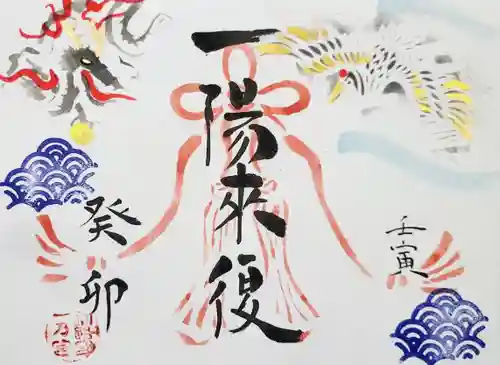 一陽来復
壬寅
癸卯